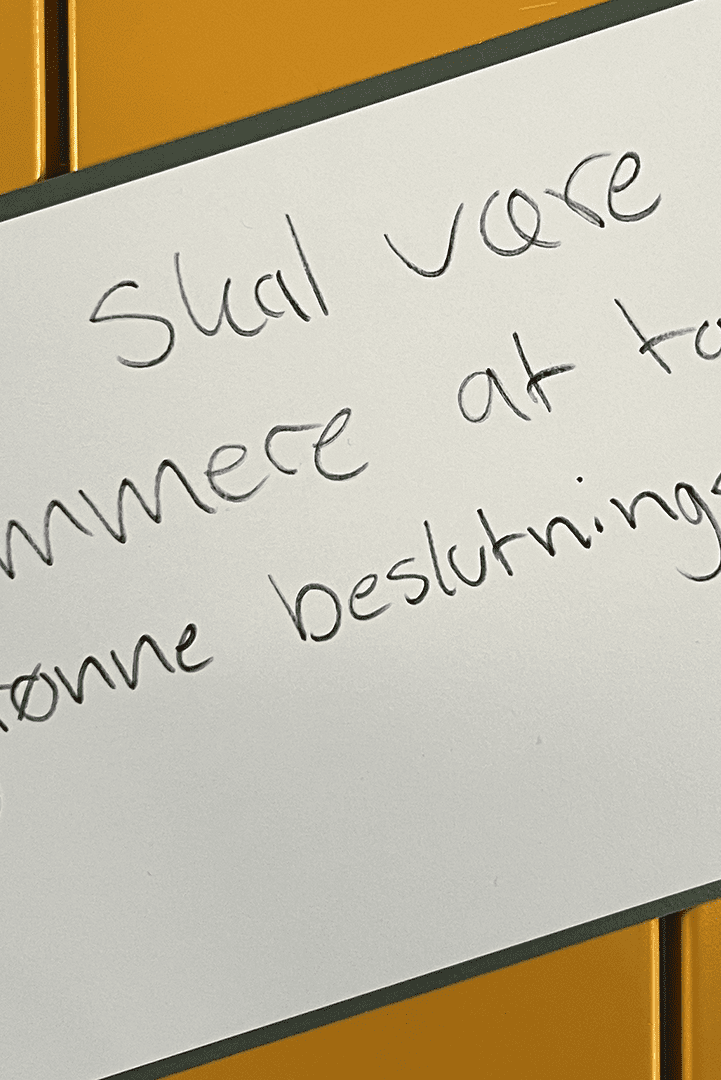 Skal være
mmere at ta
rønne beslutnings